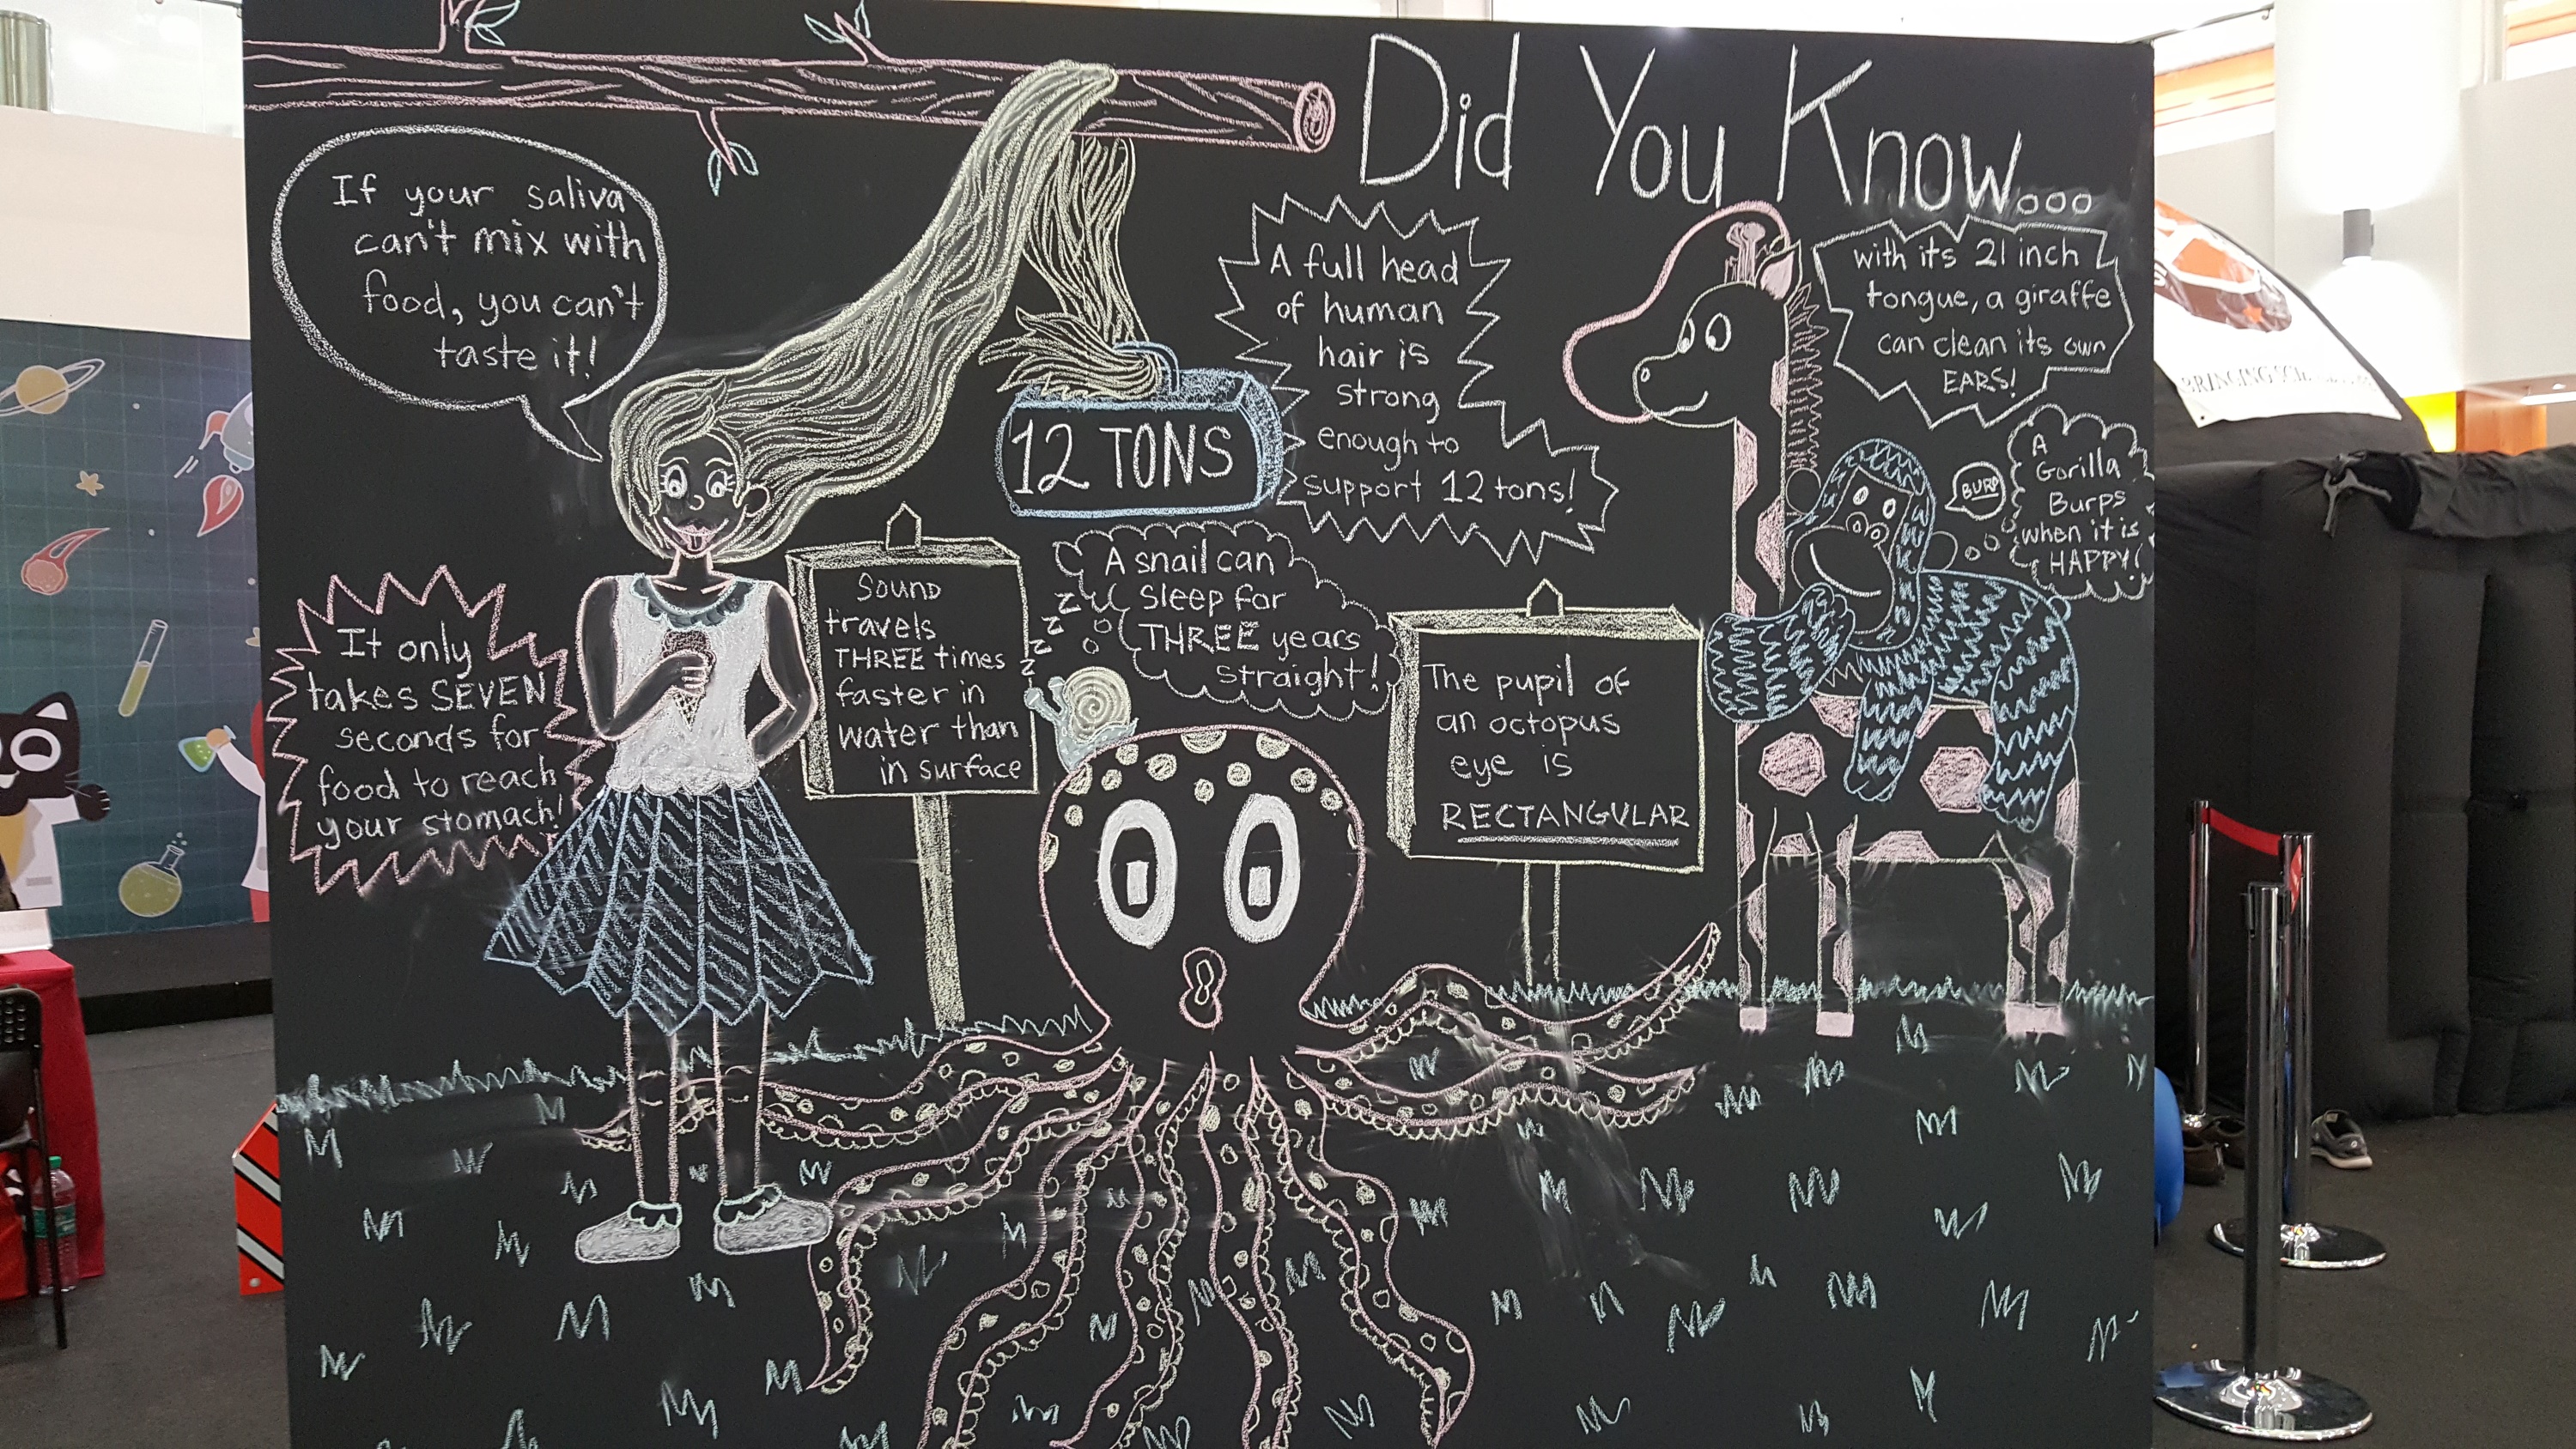 Did You Know...
If your saliva
can't mix with
food, you can't
taste it!
A full head
of human
hair is
strong
enough to
support 12 tons!
12 TONS
with its 21 inch
tongue, a giraffe
can clean its own
EARS!
BURP
A
Gorilla
Burps
when it is
HAPPY!
It only
takes SEVEN
seconds for
food to reach
your stomach!
Sound
travels
THREE times
faster in
water than
in surface
A snail can
sleep for
THREE years
straight!
z z z z
The pupil of
an octopus
eye is
RECTANGULAR
BRINGING